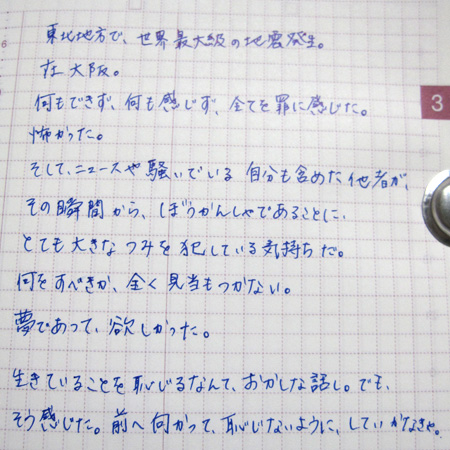 東北地方で、世界最大級の地震発生。
在大阪。
何もできず、何も感じず、全てを罪に感じた。
怖かった。
そして、ニュースや騒いでいる自分も含めた他者が、
その瞬間から、ぼうかんしゃであることに、
とても大きなつみを犯している気持ちだ。
何をすべきか、全く見当もつかない。
夢であって、欲しかった。
生きていることを恥じるなんて、おかしな話し。でも、
そう感じた。前へ向かって、恥じないように、していかなきゃ。
3
6